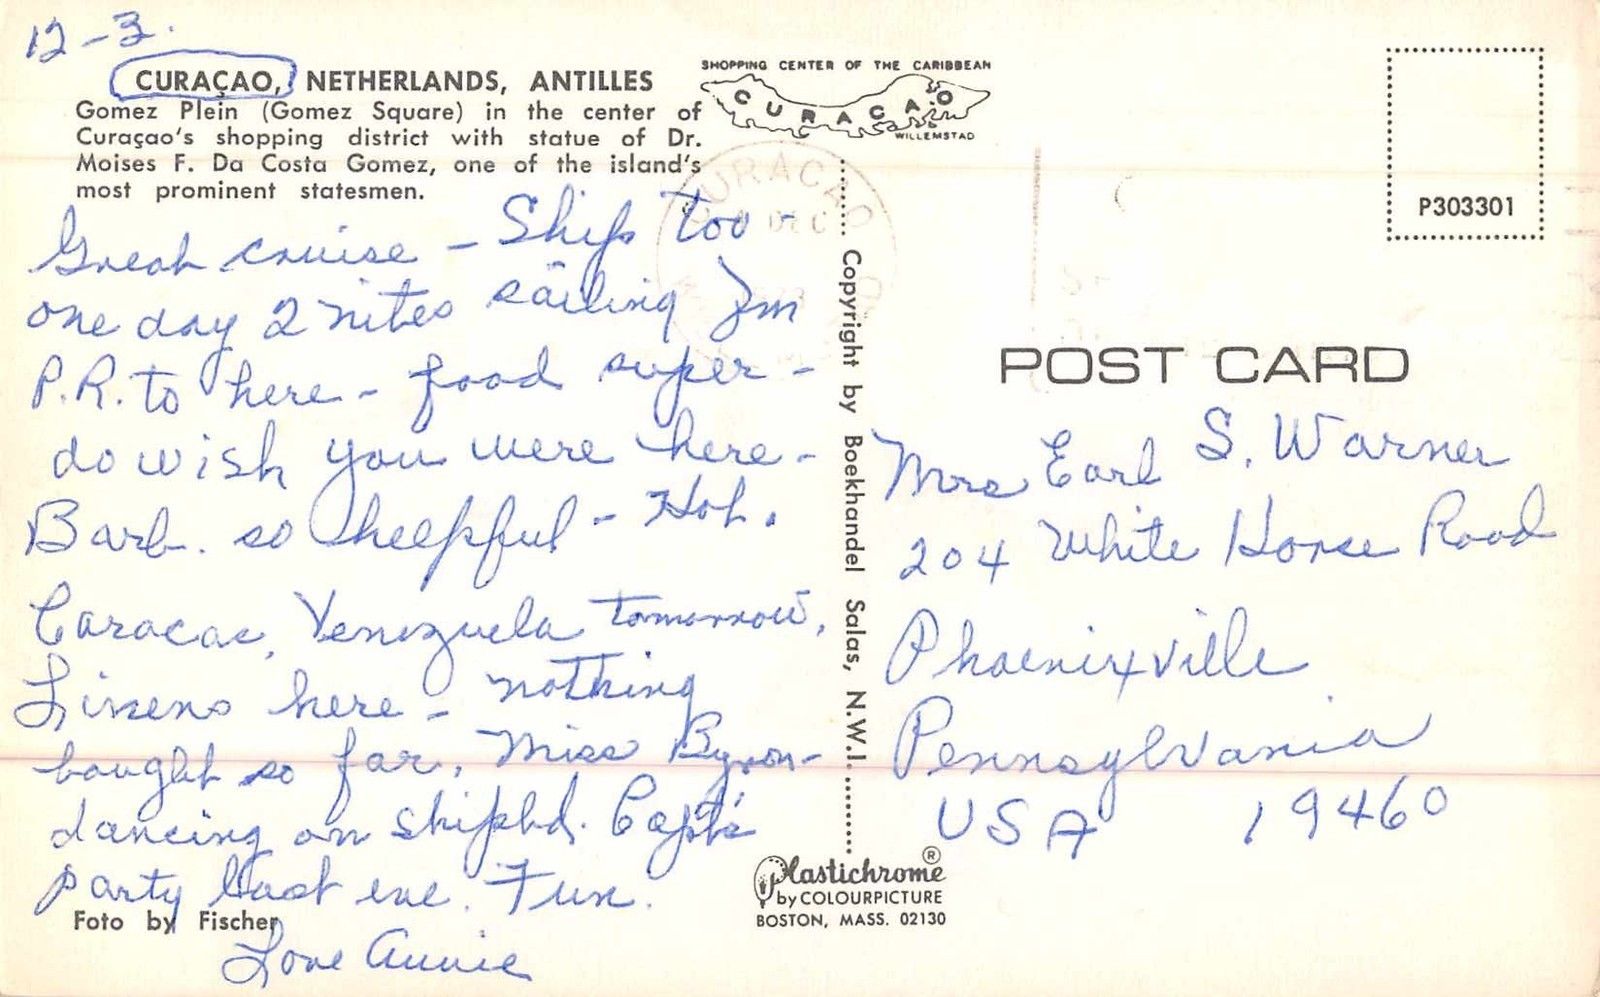 12-3.
CURAÇAO, NETHERLANDS, ANTILLES
Gomez Plein (Gomez Square) in the center of
Curaçao's shopping district with statue of Dr.
Moises F. Da Costa Gomez, one of the island's
most prominent statesmen.
Great cruise - Ship too -
one day 2 nites sailing fm
P.R. to here - food super -
do wish you were here -
Barb. so helpful - Hot.
Caracas, Venezuela tomorrow,
Linens here - nothing
bought so far. Miss Byron -
dancing on shipbd. Capt's
party last eve. Fun.
Love Annie
Foto by Fischer
SHOPPING CENTER OF THE CARIBBEAN
CURAÇAO
WILLEMSTAD
CURACAO
DEC
Copyright by Boekhandel Salas, N.W.I.
Plastichrome ®
by COLOURPICTURE
BOSTON, MASS. 02130
P303301
POST CARD
Mrs Earl S. Warner
204 White Horse Road
Phoenixville
Pennsylvania
USA 19460